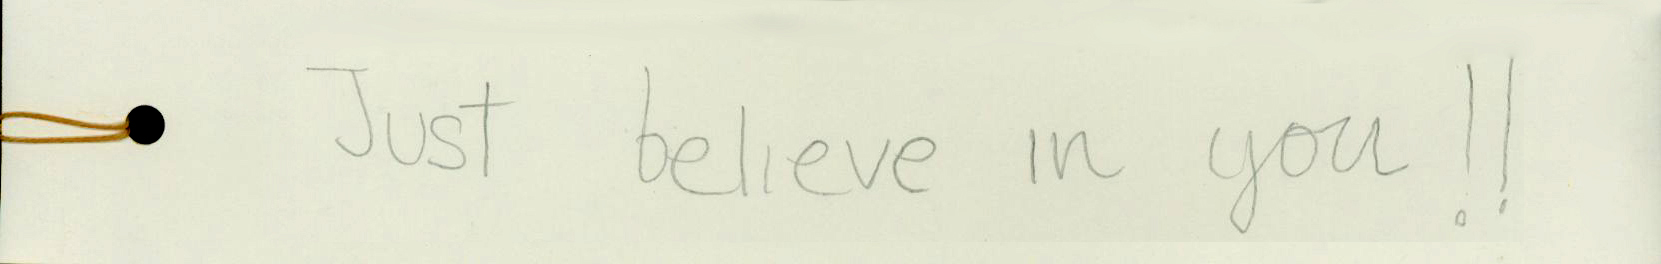 Just believe in you!!